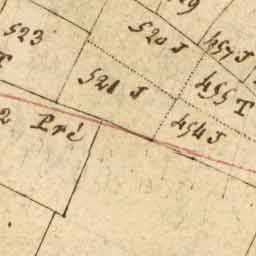 9
523
T
520 J
457 J
521 J
455 T
2 Pré
454 J